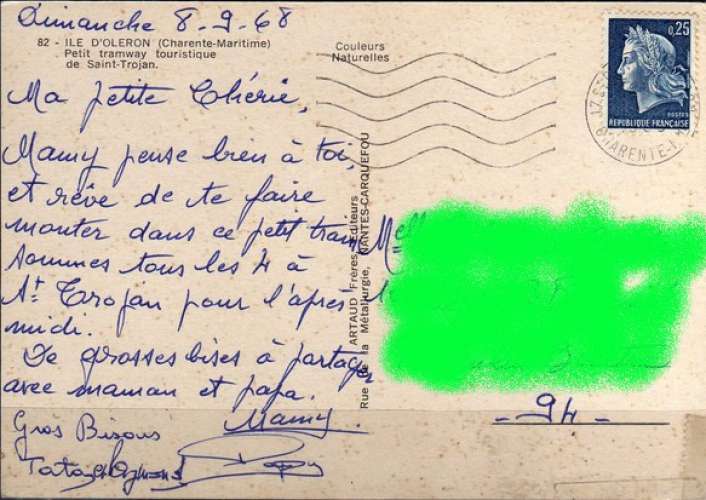 Dimanche 8-9-68
82 - ILE D'OLERON (Charente-Maritime)
Petit tramway touristique
de Saint-Trojan.
Couleurs
Naturelles
Ma petite Chérie,
Mamy pense bien à toi,
et rêve de te faire
monter dans ce petit train
sommes tous les 4 à
St Trojan pour l'après
midi.
De grosses bises à partager
avec maman et papa.
Mamy.
Gros Bisous
Tata
ARTAUD Frères, Editeurs
Rue de la Métallurgie, NANTES-CARQUEFOU
0,25
POSTES
REPUBLIQUE FRANÇAISE
CHARENTE-
Melle
- 94 -